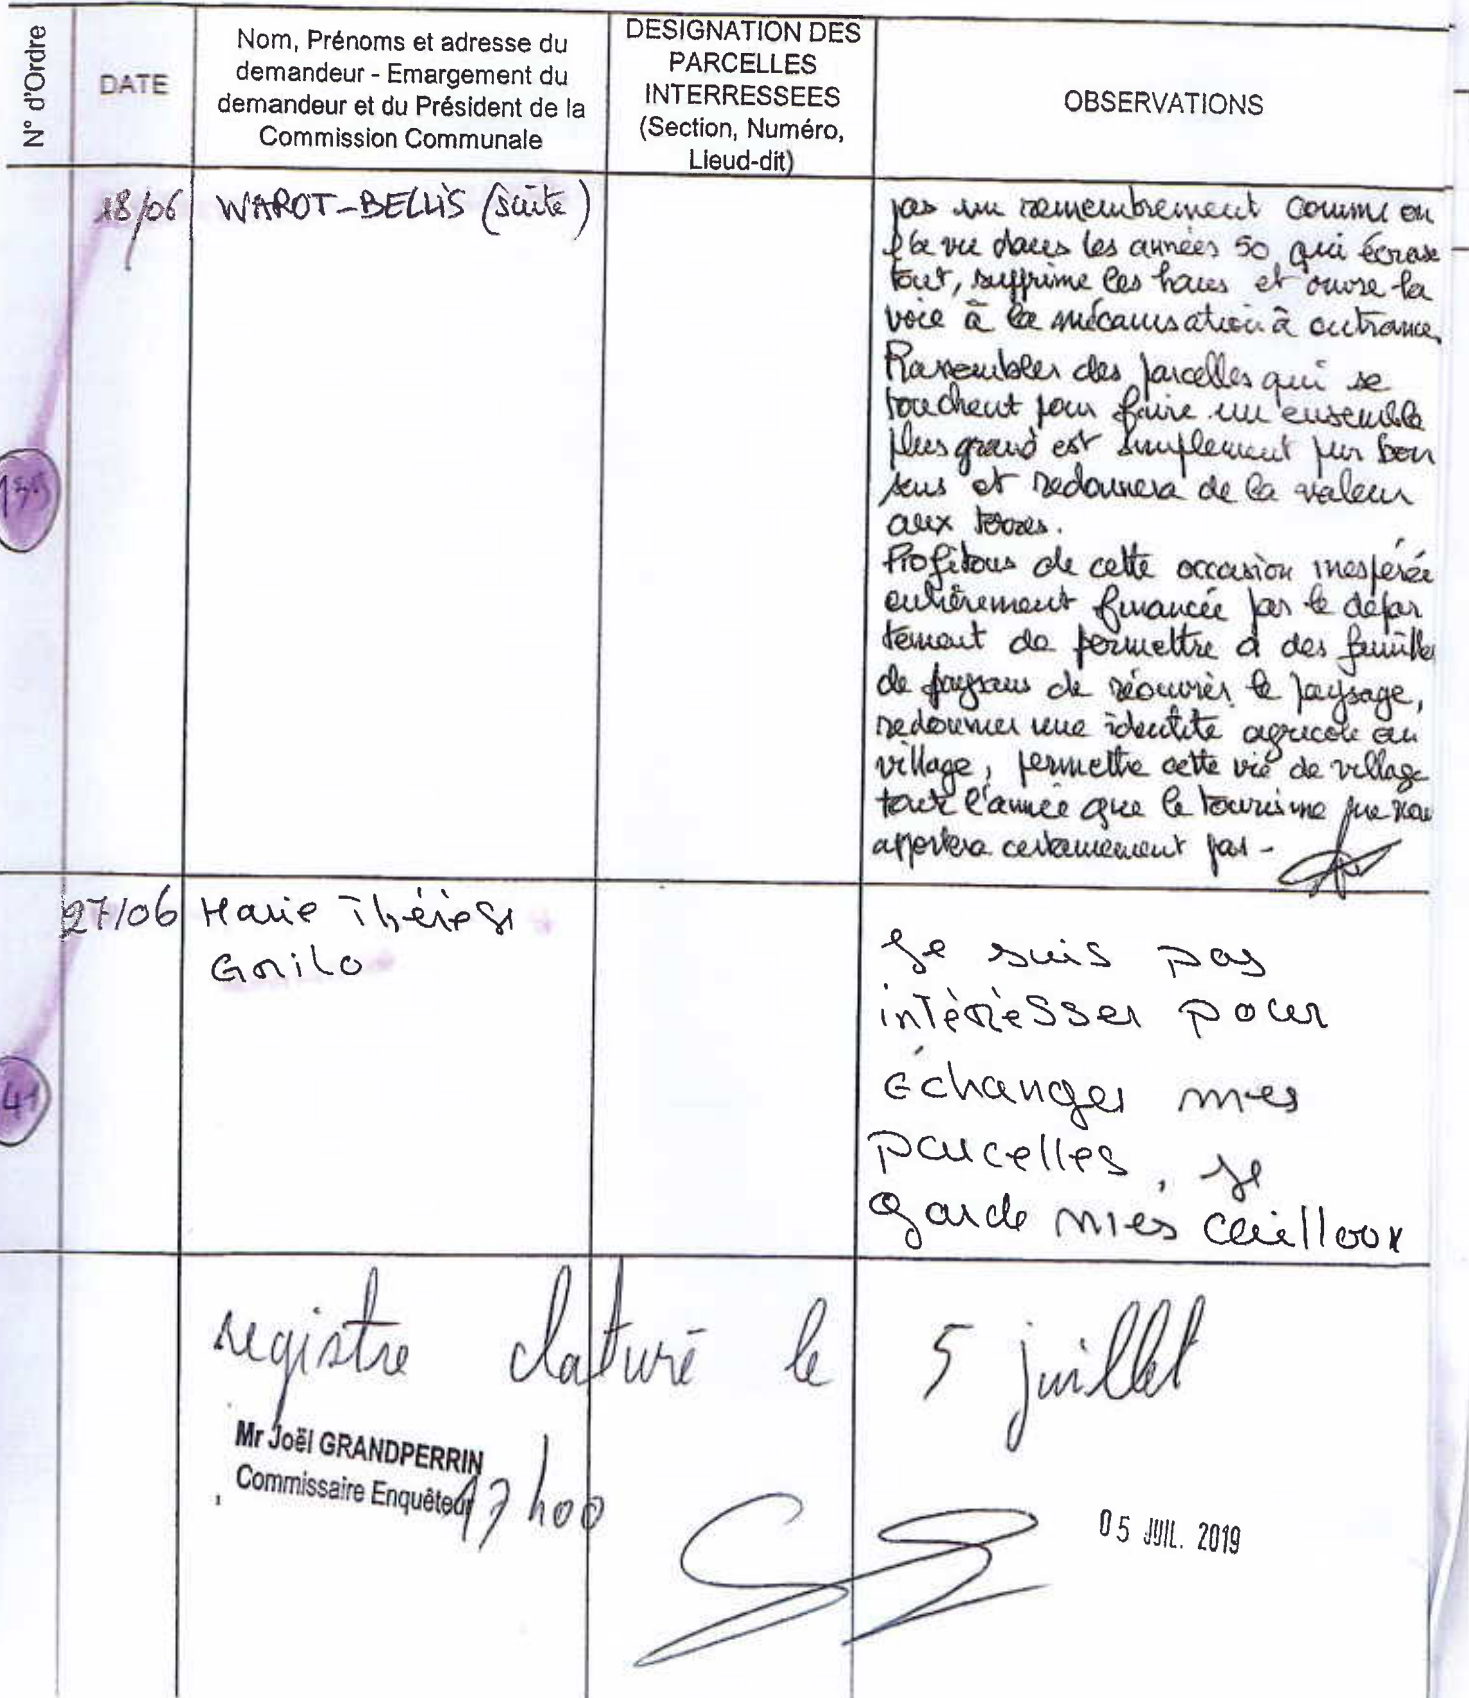 N° d'Ordre
DATE
Nom, Prénoms et adresse du
demandeur - Emargement du
demandeur et du Président de la
Commission Communale
DESIGNATION DES
PARCELLES
INTERRESSEES
(Section, Numéro,
Lieud-dit)
OBSERVATIONS
18/06
WAROT-BELLIS (suite)
pas un remembrement comme on
l'a vu dans les années 50 qui écrase
tout, supprime les haies et ouvre la
voie à la mécanisation à outrance.
Rassembler des parcelles qui se
touchent pour faire un ensemble
plus grand est simplement pur bon
sens et redonnera de la valeur
aux terres.
Profitons de cette occasion inespérée
entièrement financée par le dépar
tement de permettre à des familles
de paysans de réouvrir le paysage,
redonner une identité agricole au
village, permettre cette vie de village
toute l'année que le tourisme ne nous
apportera certainement pas -
27/06
Marie Thérèse
Grilo
Je suis pas
intèrèsser pour
échanger mes
parcelles, je
garde mes cailloux
41
registre claturé le 5 juillet
Mr Joël GRANDPERRIN
Commissaire Enquêteur
17h00
05 JUIL. 2019